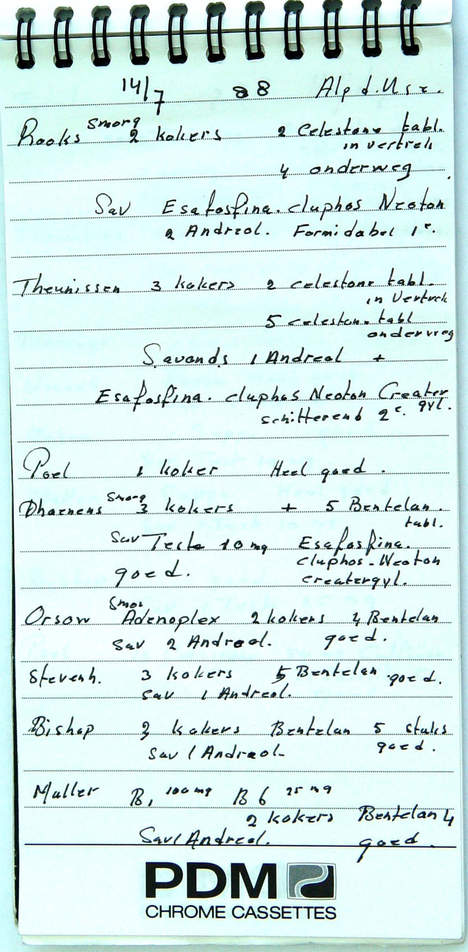 14/7 88 Alp d. Usz.
Rooks Smorg 2 kokers 2 Celestone tabl.
in vertrek
4 onderweg.
Sav Esafosfina. cluphos Neoton
2 Andreol. Formidabel 1e.
Theunissen 3 kokers 2 celestone tabl.
in Vertrek
5 celestone tabl
onderweg
Savonds 1 Andreol +
Esafosfina. cluphos Neoton Creatergyl.
schitterend 2e.
Poel 1 koker Heel goed.
Dhaenens Smorg 3 kokers + 5 Bentelan.
tabl.
Sav Testo 10 mg Esafosfina.
cluphos - Neoton
goed. creatergyl.
Orsow Smor Adenoplex 2 kokers 4 Bentelan
Sav 2 Andreol. goed.
Stevenh. 3 kokers 5 Bentelan goed.
Sav 1 Andreol.
Bishop 3 kokers Bentelan 5 stuks
Sav 1 Andreol goed.
Muller B1 100 mg B6 25 mg
2 kokers Bentelan 4
Sav 1 Andreol. goed.
PDM
CHROME CASSETTES